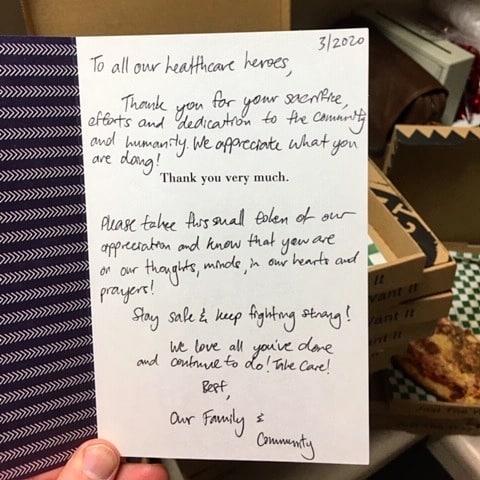 3/2020
To all our healthcare heroes,
Thank you for your sacrifice,
efforts and dedication to the community
and humanity. We appreciate what you
are doing!
Thank you very much.
Please take this small token of our
appreciation and know that you are
on our thoughts, minds, in our hearts and
prayers!
Stay safe & keep fighting strong!
We love all you've done
and continue to do! Take Care!
Best,
Our Family &
Community